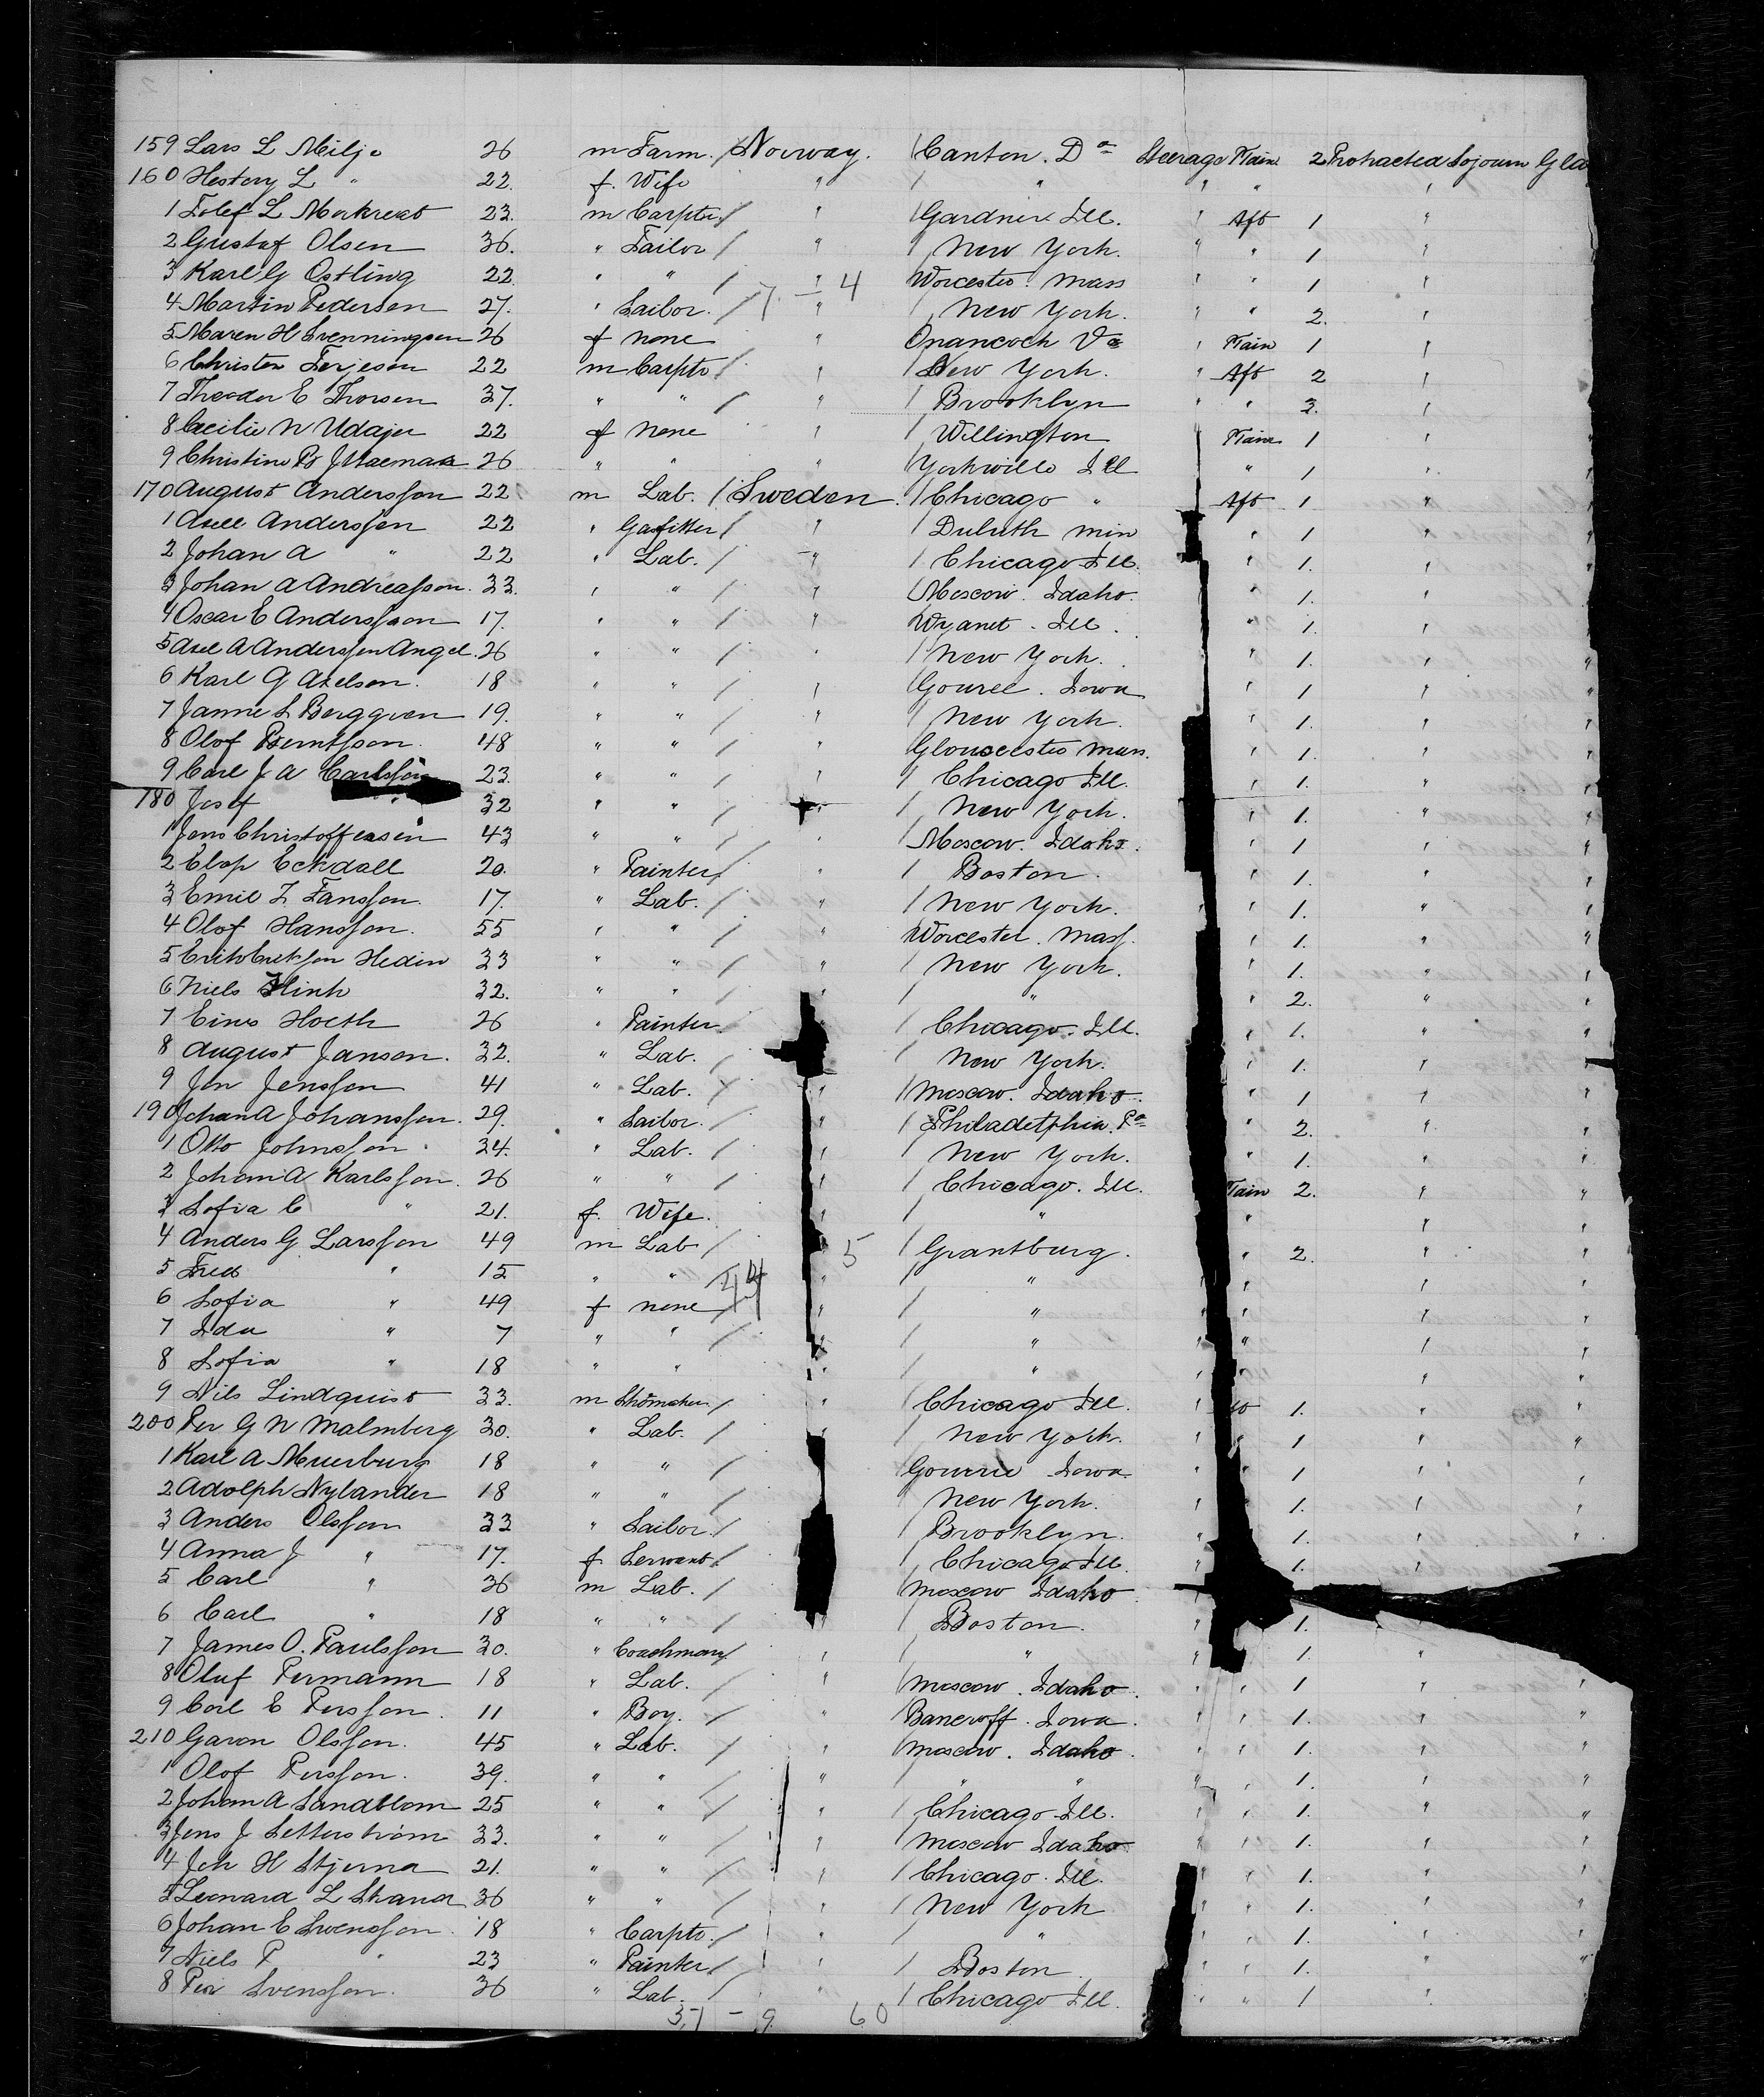 159 Lars L Milje 26 m Farm. / Norway. / Canton. Da Steerage Main 2 Protracted Sojourn Gla
160 L " 22. f. Wife " / " " " "
1 L 23. m Carptr / " / Gardner Ill. " Aft 1 "
2 Gustaf Olsen 36. " Tailor / " / New York. " " 1 "
3 Karl G Ostling 22 " " / " Worcester. Mass " " 1 "
7 - 4
4 Martin Pedersen 27. " Sailor. / " / New York. " " 2. "
5 Maren H 26 f none " Onancock Va " Main 1 "
6 Christen Terjesen 22 m Carptr / " / New York. " Aft 2 "
7 Theodor E Thorsen 37. " " / " / Brooklyn " " 3. "
8 Cecilie N Udajer 22 f None " / Willington Main 1 "
9 Christine B 26 " " " / Yorkville Ill " 1 "
170 August Andersson 22 m Lab. / Sweden. / Chicago " Aft 1 "
1 Axel Andersson 22 " Gasfitter / " / Duluth Min " 1 "
2 Johan A " 22 " Lab. / " / Chicago Ill. " 1. "
3 Johan A Andreasson. 33. " " / " / Moscow. Idaho. " 1. "
4 Oscar E Andersson 17. " " / " Wyanet. Ill. " 1. "
5 Axel A Andersson Angel. 26 " " / " / New York. " 1. " "
6 Karl G Axelson. 18 " " / " / Iowa " 1 " "
7 Janne L Berggren 19. " " / " / New York. " 1. " "
8 Olof Berntsson. 48 " " / " Gloucester Mass. " 1. " "
9 Carl J A Carlsson 23. " " / " / Chicago Ill. " 1. " "
180 Josef " 32 " " / " / New York. " 1. " "
1 Jens Christoffersen 43 " " / " / Moscow. Idaho. " 1 " "
2 Eckdall 20. " Painter / " / Boston. " 1. " "
3 Emil F. Fansson. 17. " Lab. / " / New York. " " 1. " "
4 Olof Hansson. 55 " " / " Worcester. Mass. " 1. " "
5 Erik Erikson Hedin 33 " " / " / New York. " 1. " "
6 Niels 32. " " / " / " " 2. " "
7 Hoeth 26 " Painter. / " / Chicago. Ill. " 1. " "
8 August Janson. 32. " Lab. / / New York. " 1. " "
9 Jon Jensson 41 " Lab. / " / Moscow. Idaho " 1 " "
190 Johan A Johansson. 29. " Sailor. / " / Philadelphia. Pa " 2. " "
1 Otto Johnsson 34. " Lab. / " / New York. " 1. " "
2 Johan A Karlsson. 26 " " / " / Chicago. Ill. Main 2. " "
3 Sofia C " 21. f. Wife. " / " " " "
4 Anders G Larsson 49 m Lab / 5 / Grantburg. " 2. " "
5 Fred " 15 " " 44 " / " " " "
6 Sofia " 49 f none / " / " " " "
7 Ida " 7 " " / " / " " " " "
8 Sofia " 18 " " " / " " " " "
9 Nils Lindquist 33. m Shomaker / " / Chicago Ill. " 1. " "
200 Per G N Malmberg 30. " Lab. / / New York. " " 1 " "
1 Karl A 18 " " / Gowrie Iowa " " 1 " "
2 Adolph Nylander 18 " " / / New York. " " 1. " "
3 Anders Olsson 33 " Sailor. / / Brooklyn. " 1. " "
4 Anna J " 17. f Servant. / / Chicago Ill. " 1. "
5 Carl " 36 m Lab. / Moscow Idaho "
6 Carl " 18 " " / " / Boston. " 1.
7 James O. Paulsson 30. " Coachman / " / " " 1. "
8 Oluf Permann 18 " Lab. / " / Moscow. Idaho. " " 1 " "
9 Carl E Persson. 11 " Boy. / " Bancroff. Iowa. " " 1. " "
210 Garon Olsson. 45 " Lab. / " / Moscow. Idaho. " " 1. " "
1 Olof Persson. 39. " " / " / " " " " 1. " "
2 Johan A Sandblom 25 " " / " / Chicago Ill. " " 1. " "
3 Jens J Setterstrom 33. " " / " / Moscow Idaho " " 1. " "
4 Joh H Stjerna 21. " " / " / Chicago. Ill. " " 1. " "
5 Leonard L Strand 36 " " / " / New York " " 1. " "
6 Johan E Swensson. 18 " Carptr. / " / " " " 1. " "
7 Niels P " 23 " Painter / " / Boston " " 1. " "
8 Per Svensson. 36 " Lab. / " / Chicago Ill. " " 1 " "
51 - 9 60